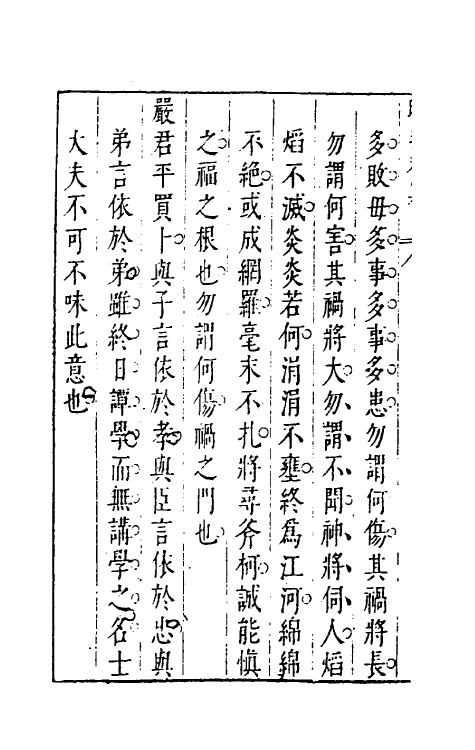 多敗毋多事多事多患勿謂何傷其禍將長
勿謂何害其禍將大勿謂不聞神將伺人焰
焰不滅炎炎若何涓涓不壅終爲江河綿綿
不絶或成網羅毫末不扎將尋斧柯誠能愼
之福之根也勿謂何傷禍之門也
嚴君平買卜與子言依於孝與臣言依於忠與
弟言依於弟雖終日譚學而無講學之名士
大夫不可不味此意也